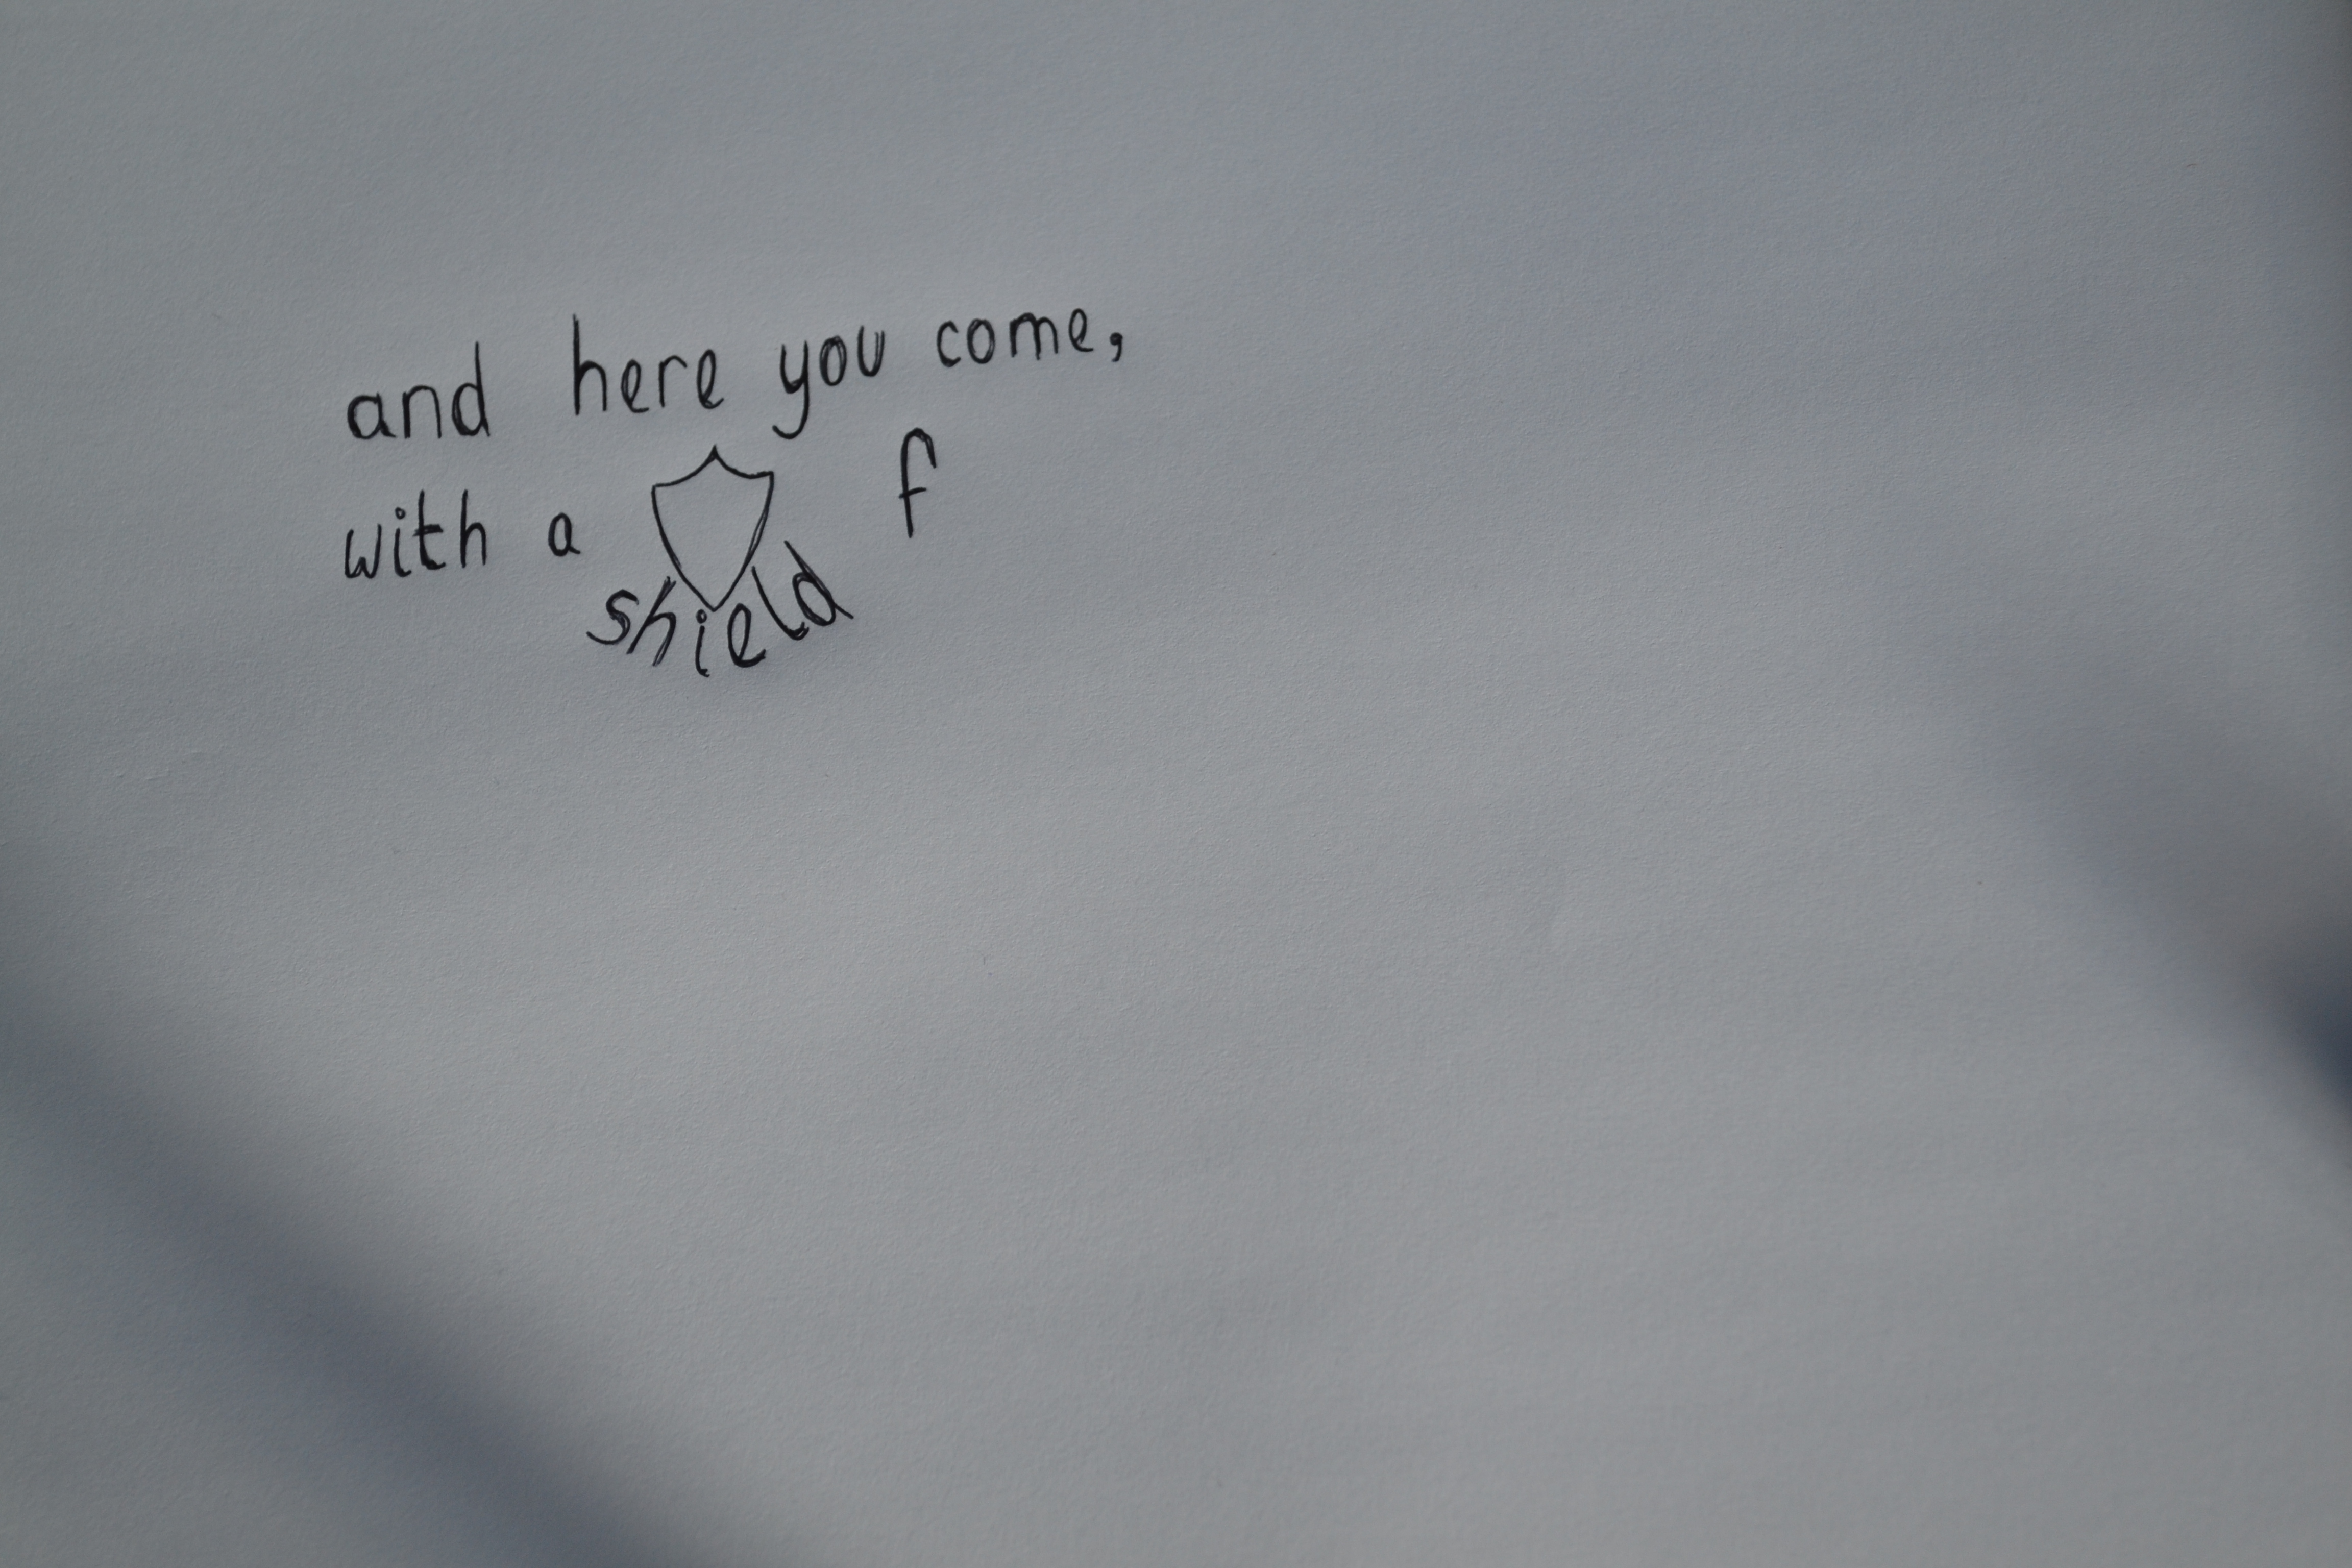 and here you come,
with a f
shield